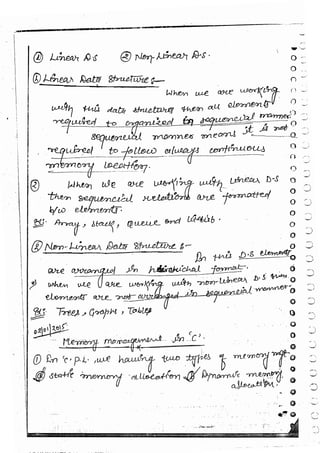 ① Linear D.S ② Non-Linear D.S.
① Linear Data Structure :-
When we are working
with this data structures then all elements
required to organized in sequencial manner.
sequencial manner means it is not
required to follow always continuous
memory location.
② When we are working with linear D.S
then sequencial relations are formatted
b/w elements.
Eg: Array, stack, queue and linklist.
② Non-Linear Data Structure :-
In this D.S elements
are arranged in hierarichial format.
* when we are working with non-linear D.S then
elements are not arranged in sequencial manner.
Eg: Trees, Graphs, Tables
02/01/2015
Memory management in 'C'.
① In 'c' p.L, we having two types of memory mgt
① static memory allocation ② Dynamic memory
allocation.